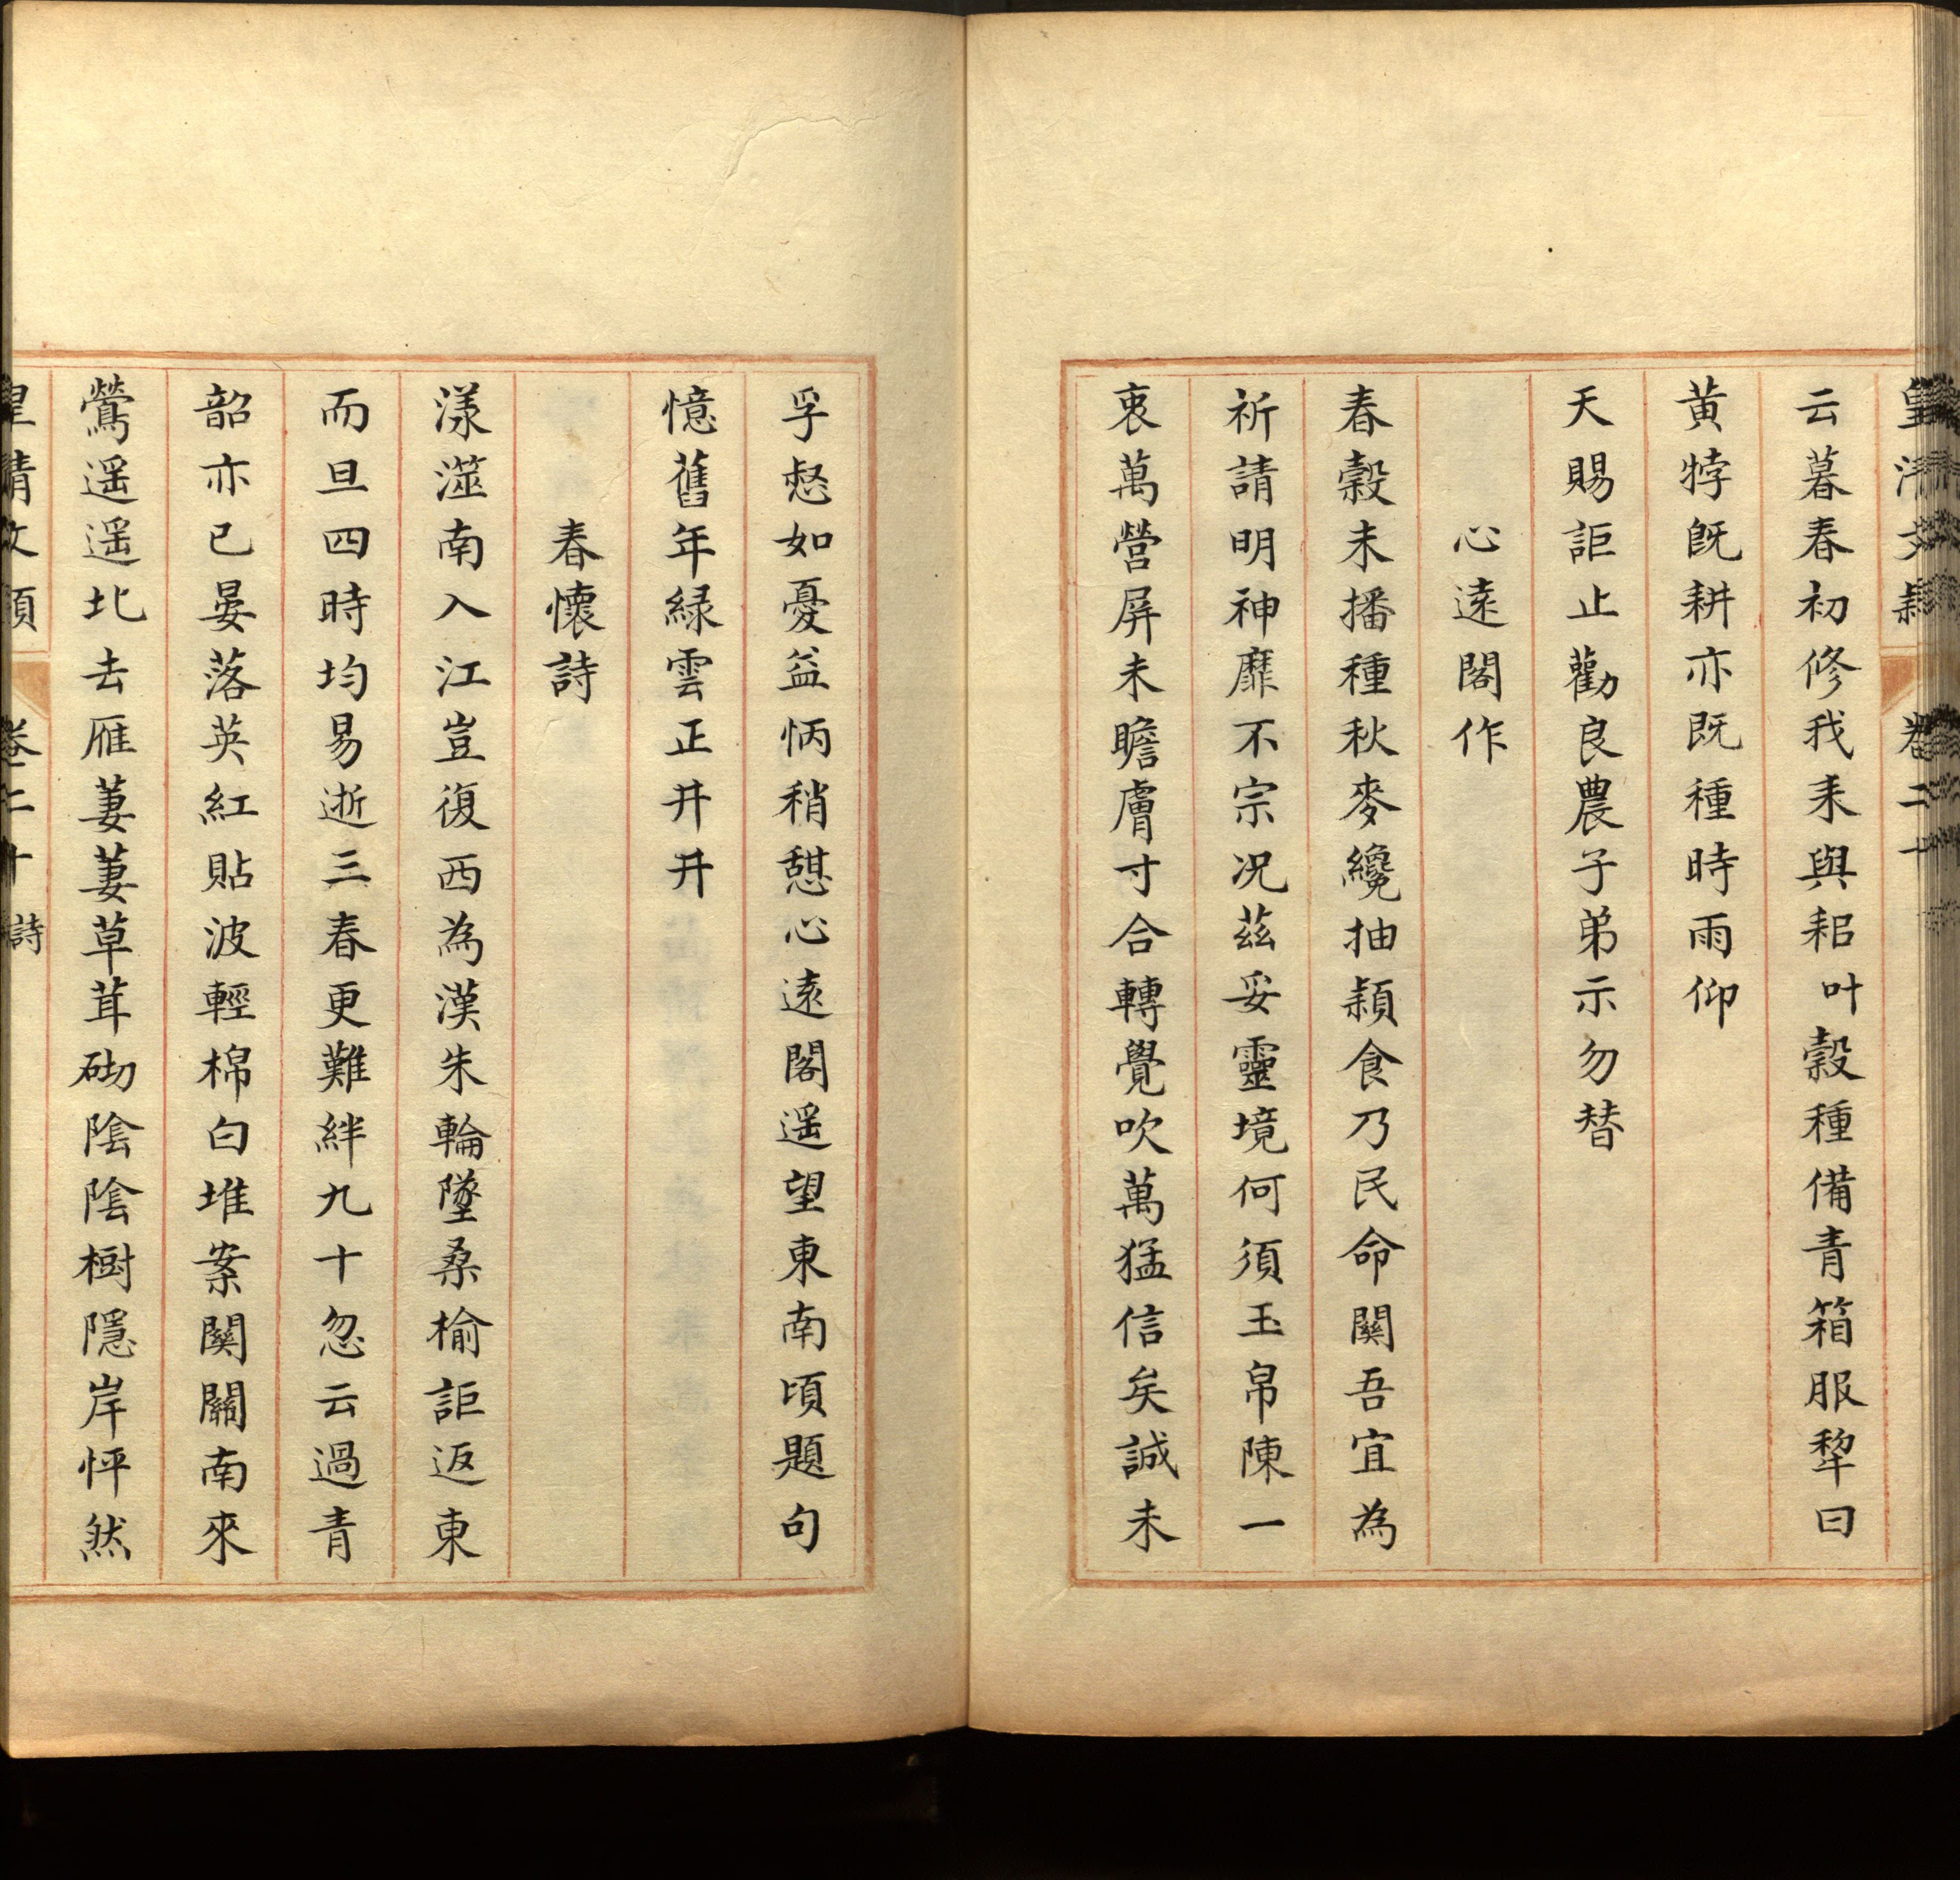 皇清文穎 卷二十
云暮春初修我耒與耜叶穀種備青箱服犂曰
黄犉既耕亦既種時雨仰
天賜詎止勸良農子弟示勿替
心遠閣作
春穀未播種秋麥纔抽穎食乃民命關吾宜為
祈請明神靡不宗况兹妥靈境何須玉帛陳一
衷萬營屏未瞻膚寸合轉覺吹萬猛信矣誠未
孚愁如憂益怲稍憇心遠閣遥望東南頃題句
憶舊年緑雲正井井
春懷詩
漾澨南入江豈復西為漢朱輪墜桑榆詎返東
而旦四時均易逝三春更難絆九十忽云過青
韶亦已晏落英紅貼波輕棉白堆案關關南來
鶯遥遥北去雁萋萋草茸砌陰陰樹隱岸怦然
皇清文穎 卷二十 詩